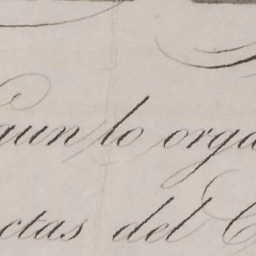 gun lo orga
ctas del C